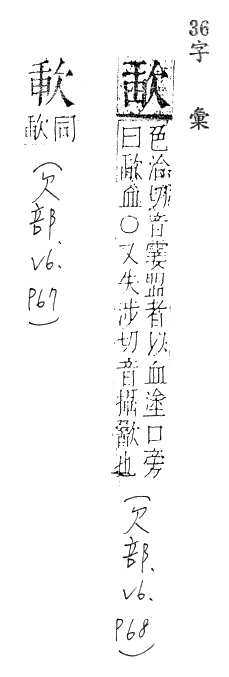 36字彙
歃
色洽切音霎盟者以血塗口旁
曰歃血○又失涉切音攝歠也
(欠部、v6. p68)
同
歃
(欠部、v6. p67)